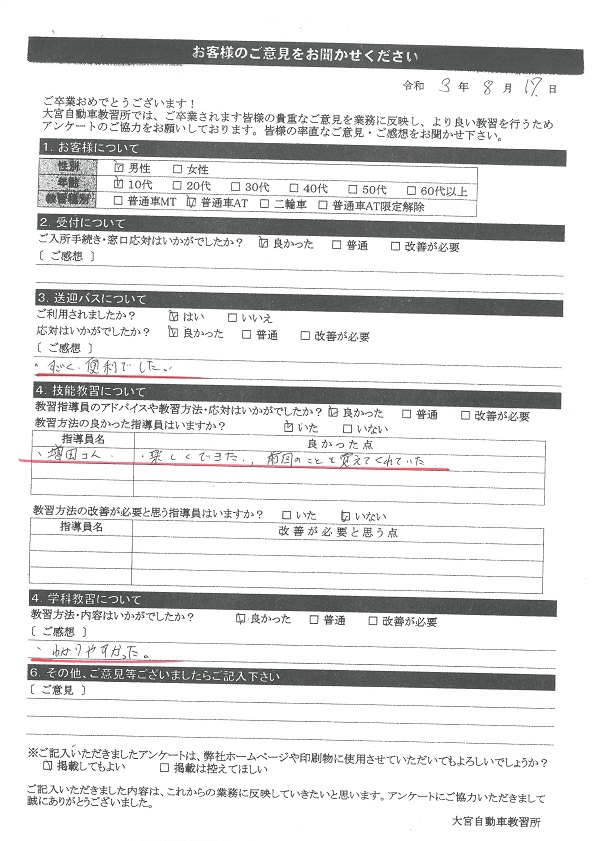 お客様のご意見をお聞かせください
令和 3 年 8 月 17 日
ご卒業おめでとうございます！
大宮自動車教習所では、ご卒業されます皆様の貴重なご意見を業務に反映し、より良い教習を行うため
アンケートのご協力をお願いしております。皆様の率直なご意見・ご感想をお聞かせ下さい。
1. お客様について
性別 ☑ 男性 □ 女性
年齢 ☑ 10代 □ 20代 □ 30代 □ 40代 □ 50代 □ 60代以上
教習種別 □ 普通車MT ☑ 普通車AT □ 二輪車 □ 普通車AT限定解除
2. 受付について
ご入所手続き・窓口応対はいかがでしたか？ ☑ 良かった □ 普通 □ 改善が必要
〔 ご感想 〕
3. 送迎バスについて
ご利用されましたか？ ☑ はい □ いいえ
応対はいかがでしたか？ ☑ 良かった □ 普通 □ 改善が必要
〔 ご感想 〕
・すごく便利でした。
4. 技能教習について
教習指導員のアドバイスや教習方法・応対はいかがでしたか？ ☑ 良かった □ 普通 □ 改善が必要
教習方法の良かった指導員はいますか？ ☑ いた □ いない
指導員名 良かった点
・増田さん ・楽しくできた。、前回のことを覚えてくれていた
教習方法の改善が必要と思う指導員はいますか？ □ いた ☑ いない
指導員名 改善が必要と思う点
4. 学科教習について
教習方法・内容はいかがでしたか？ ☑ 良かった □ 普通 □ 改善が必要
〔 ご感想 〕
・わかりやすかった。
6. その他、ご意見等ございましたらご記入下さい
〔 ご意見 〕
※ご記入いただきましたアンケートは、弊社ホームページや印刷物に使用させていただいてもよろしいでしょうか？
☑ 掲載してもよい □ 掲載は控えてほしい
ご記入いただきました内容は、これからの業務に反映していきたいと思います。アンケートにご協力いただきまして
誠にありがとうございました。
大宮自動車教習所